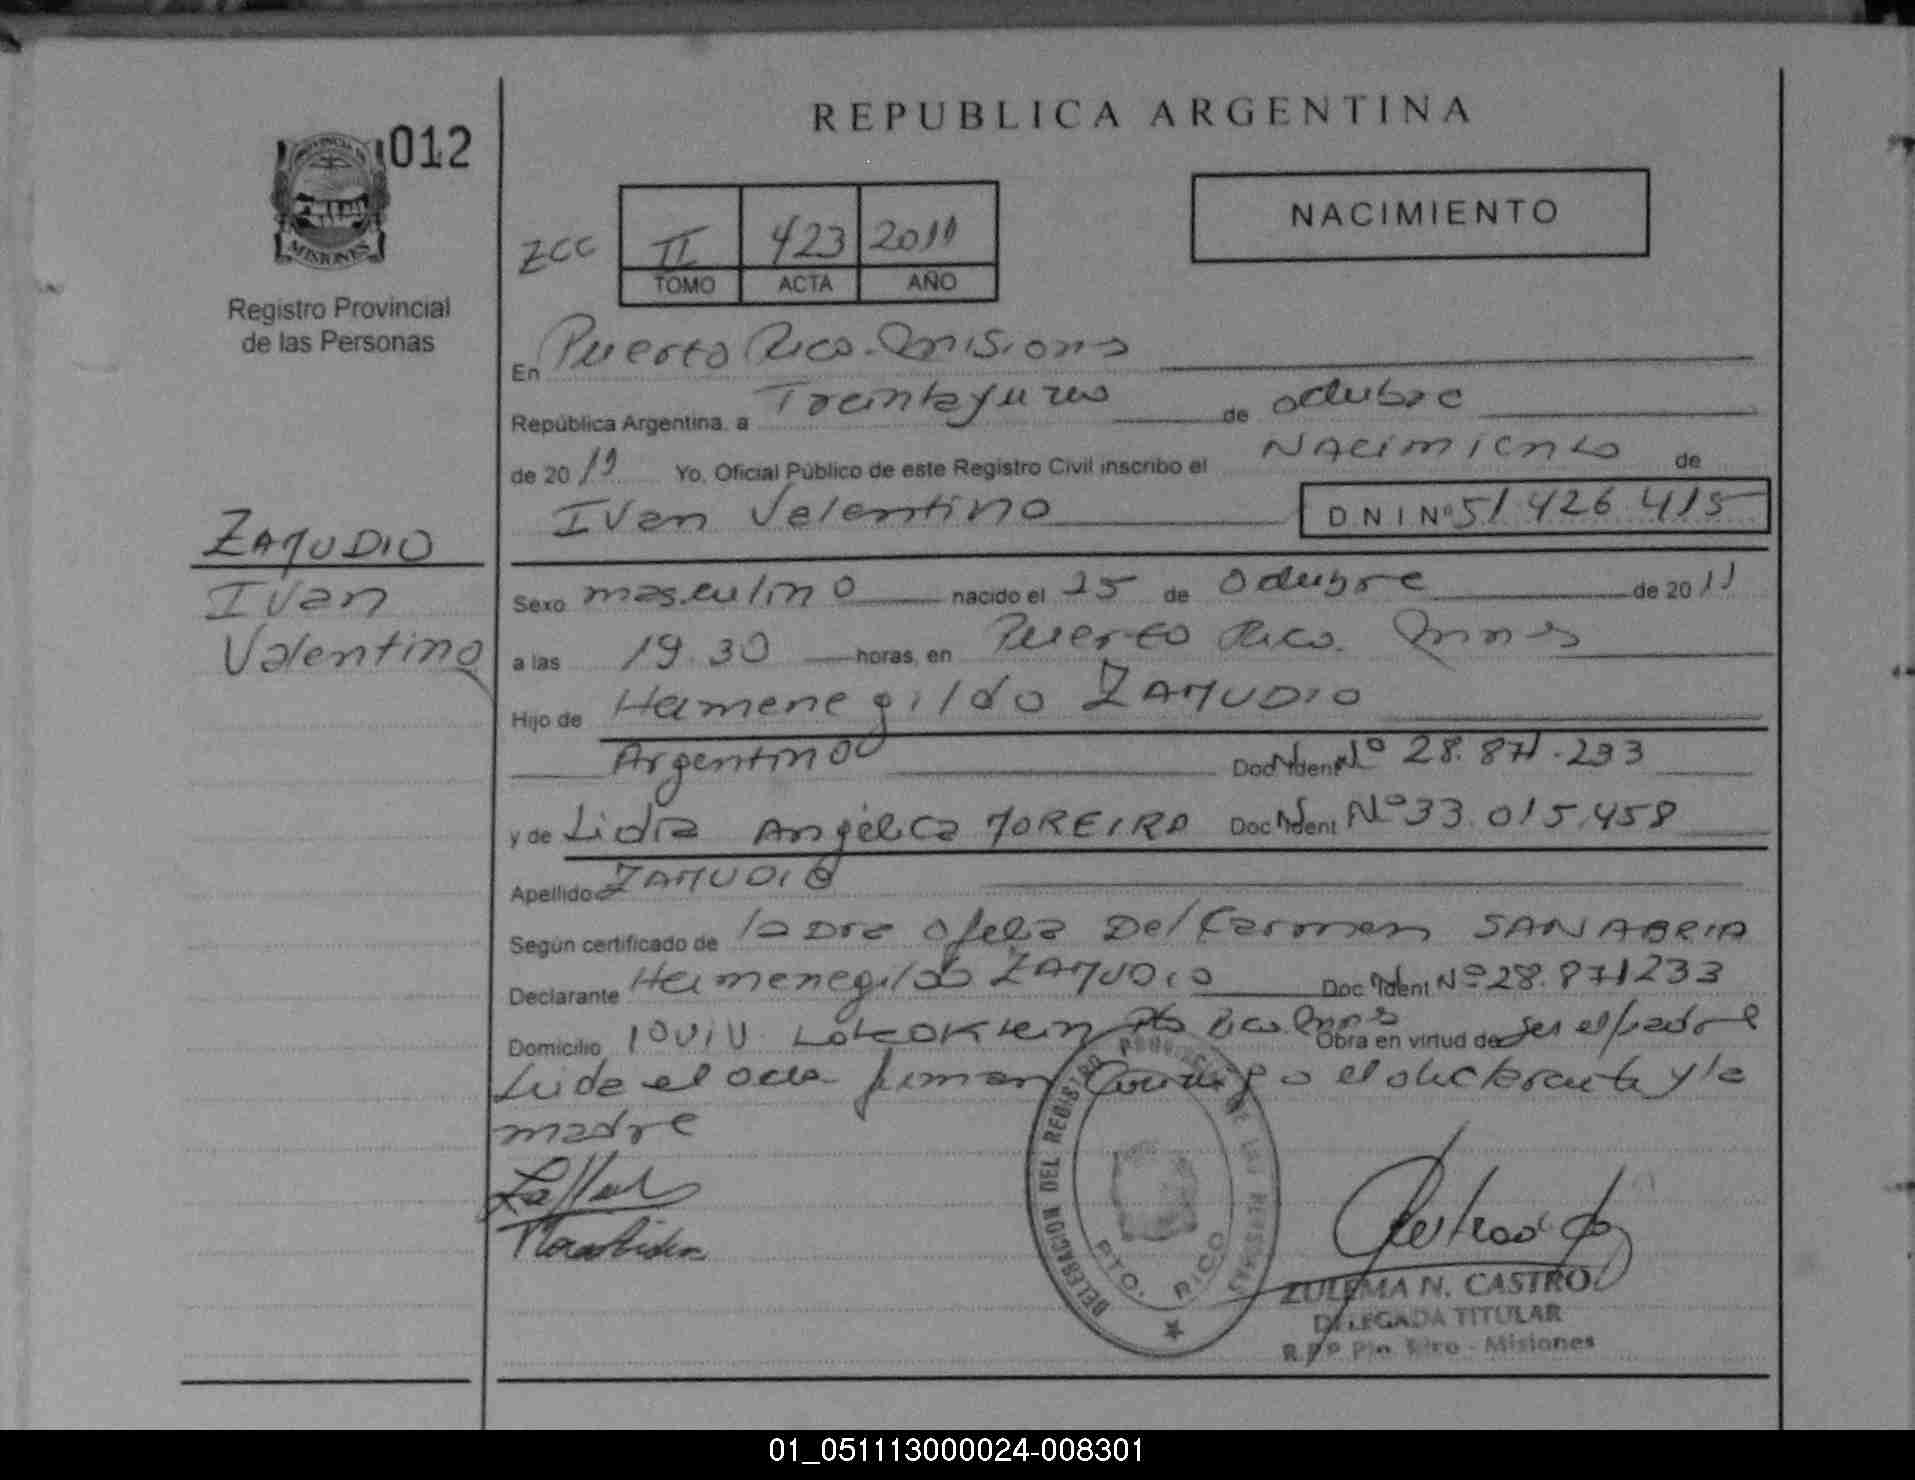 REPUBLICA ARGENTINA
012
PROVINCIA DE
MISIONES
Registro Provincial
de las Personas
NACIMIENTO
ZCC II 423 2011
TOMO ACTA AÑO
En Puerto Rico. Misiones
República Argentina, a Treinta y uno de octubre
de 20 11 Yo, Oficial Público de este Registro Civil inscribo el Nacimiento de
Ivan Valentino DNI Nº 51 426 415
ZAMUDIO
Ivan
Valentino
Sexo masculino nacido el 25 de Octubre de 20 11
a las 19.30 horas, en Puerto Rico. Mnes
Hijo de Hermenegildo ZAMUDIO
Argentino Doc Ident Nº 28.871.233
y de Lidia Angélica MOREIRA Doc Ident Nº 33.015.458
Apellido ZAMUDIO
Según certificado de la Dra Ofelia Del Carmen SANABRIA
Declarante Hermenegildo ZAMUDIO Doc Ident Nº 28.871233
Domicilio Lote Pto Rico. Mnes Obra en virtud de ser el padre
Leida el acta firman Conmigo el declarante y la
madre
DELEGACION DEL REGISTRO PROVINCIAL DE LAS PERSONAS
PTO. RICO
ZULEMA N. CASTRO
DELEGADA TITULAR
R.P.P. Pto. Rico - Misiones
01_051113000024-008301